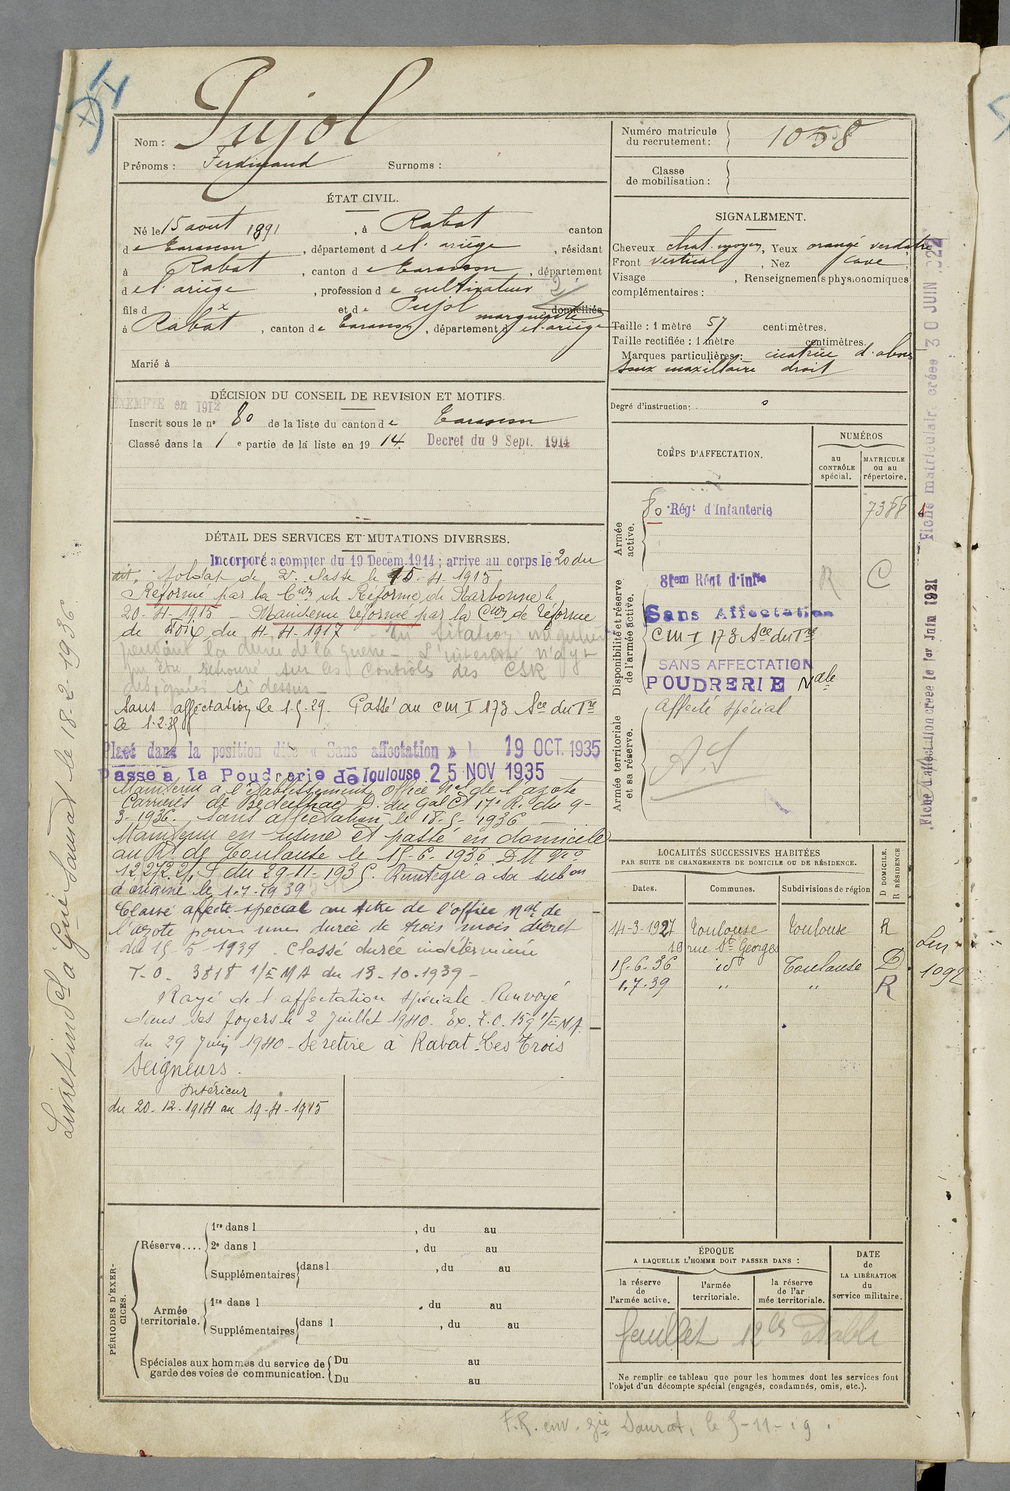 Nom : Pujol
Prénoms : Ferdinand Surnoms :
Numéro matricule du recrutement : 1058
Classe de mobilisation :
ÉTAT CIVIL.
Né le 15 août 1891, à Rabat canton
de Tarascon, département de l'ariège, résidant
à Rabat, canton de Tarascon, département
de l'ariège, profession de cultivateur
fils d x et de Pujol marguerite domiciliés
à Rabat, canton de Tarascon, département de l'ariège
Marié à
SIGNALEMENT.
Cheveux chat. moyen, Yeux orangé verdâtre
Front vertical, Nez cave
Visage , Renseignements physionomiques
complémentaires :
Taille : 1 mètre 57 centimètres.
Taille rectifiée : 1 mètre centimètres.
Marques particulières : cicatrice d'abcès
sous maxillaire droit
Degré d'instruction : 0
DÉCISION DU CONSEIL DE REVISION ET MOTIFS.
EXEMPTÉ en 1912
Inscrit sous le n° 80 de la liste du canton de Tarascon
Classé dans la 1 e partie de la liste en 1914. Decret du 9 Sept. 1914
CORPS D'AFFECTATION.
NUMÉROS
au CONTRÔLE spécial.
MATRICULE ou au répertoire.
Armée active.
80e Régt d'Infanterie 7388
Disponibilité et réserve de l'armée active.
81em Régt d'Infie R C
Sans Affectation
CM I 173 Sce du Tre
SANS AFFECTATION
POUDRERIE Nale
Armée territoriale et sa réserve.
affecté spécial
A.S
DÉTAIL DES SERVICES ET MUTATIONS DIVERSES.
Incorporé a compter du 19 Décem. 1914 ; arrive au corps le 20 du
dit. Soldat de 2e classe le 15-4-1915
Réformé par la Con de Réforme de Narbonne le
20-4-1915. Maintenu réformé par la Con de réforme
de Foix du 4-4-1917
pendant la durée de la guerre - L'intéressé n'ayt
pu être retrouvé sur les Contrôles des CSR
désignés ci dessus -
Sans affectation le 1-5-29. Passé au CM I 173 Sce du Tre
le 1-2-35
Placé dans la position dite « Sans affectation » le 19 OCT. 1935
Passe a la Poudrerie de Toulouse 25 NOV 1935
Maintenu à l'établissement office Nal de l'azote
Carrières de D. du Gal Ct 17e R. du 9-
3-1936. Sans affectation le 15-5-1936 -
Maintenu en usine et passé en domicile
au R. de Toulouse le 15-6-1936 DM No
12272. 2/1. S du 29-11-1935. Réintégré a sa subon
d'origine le 1-7-1939
Classé affecté spécial au titre de l'office Nal de
l'azote pour une durée de trois mois décret
du 15-5-1939. Classé durée indéterminée
T.O. 3818 1/EMA du 13-10-1939 -
Rayé de l'affectation spéciale. Renvoyé
dans ses foyers le 2 Juillet 1940. Ex. T.O. 159 1/EMA
du 29 Juin 1940 - Se retire à Rabat-Les Trois
Seigneurs.
Intérieur
du 20-12-1914 au 19-4-1915
LOCALITÉS SUCCESSIVES HABITÉES
PAR SUITE DE CHANGEMENTS DE DOMICILE OU DE RÉSIDENCE.
Dates. Communes. Subdivisions de région D DOMICILE. R RÉSIDENCE
14-3-1927 Toulouse Toulouse R
19 rue St Georges
15-6-36 id° Toulouse D
1.7.39 " " R
1092
PÉRIODES D'EXERCICES.
Réserve....
1re dans l , du au
2e dans l , du au
Supplémentaires dans l , du au
Armée territoriale.
1re dans l , du au
Supplémentaires dans l , du au
Spéciales aux hommes du service de garde des voies de communication. Du au
Du au
ÉPOQUE
A LAQUELLE L'HOMME DOIT PASSER DANS :
la réserve de l'armée active.
l'armée territoriale.
la réserve de l'armée territoriale.
DATE de LA LIBÉRATION du service militaire.
feuillet 12 bis établi
Ne remplir ce tableau que pour les hommes dont les services font
l'objet d'un décompte spécial (engagés, condamnés, omis, etc.).
F.R. env. gie Saurat, le 5-11-19
Fiche matriculaire créée 30 JUIN 1922
Fiche d'affectation créée le 1er Juin 1921